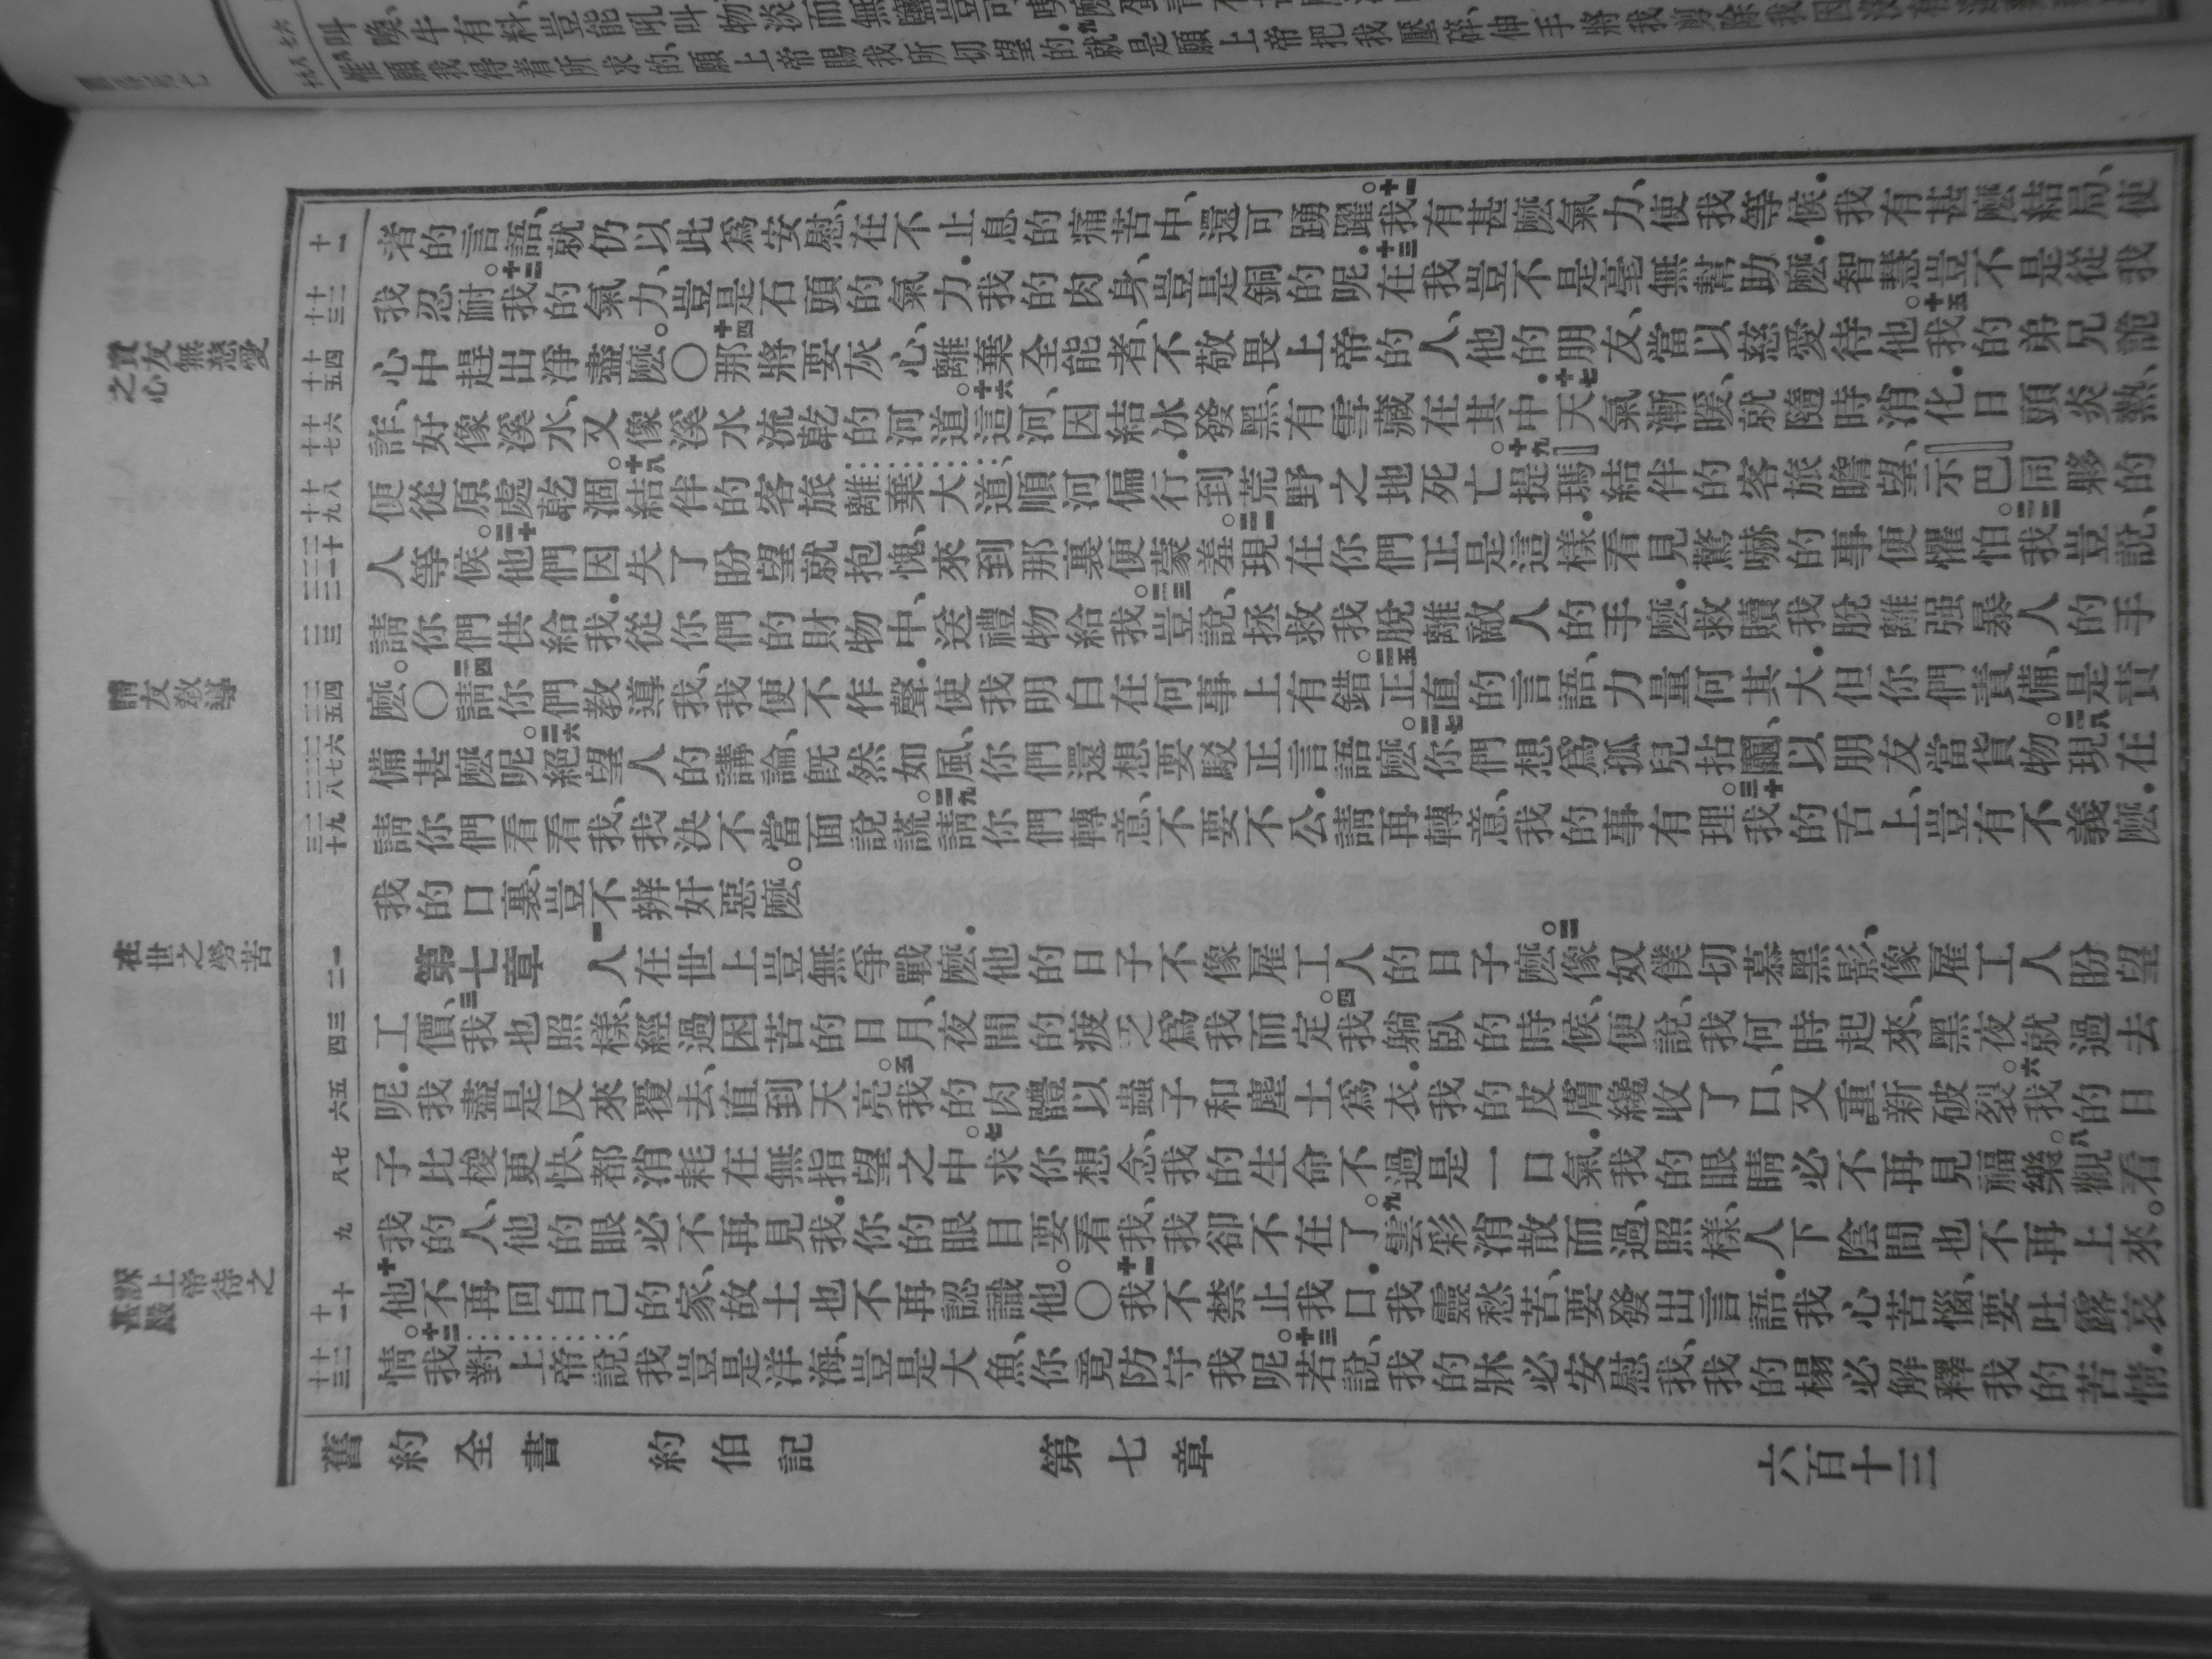 者的言語、就仍以此爲安慰、在不止息的痛苦中、還可踴躍。十一我有甚麽氣力、使我等候．我有甚麽結局、使
我忍耐。十二我的氣力、豈是石頭的氣力．我的肉身、豈是銅的呢．十三在我豈不是毫無幫助麽．智慧豈不是從我
心中趕出淨盡麽。〇十四那將要灰心、離棄全能者、不敬畏上帝的人、他的朋友、當以慈愛待他。十五我的弟兄詭
詐、好像溪水、又像溪水流乾的河道。十六這河、因結冰發黑、有雪藏在其中．十七天氣漸暖、就隨時消化．日頭炎熱、
便從原處乾涸。十八結伴的客旅離棄大道、順河偏行．到荒野之地死亡。十九提瑪結伴的客旅瞻望、示巴同夥的
人等候。二十他們因失了盼望就抱愧、來到那裏便蒙羞。二一現在你們正是這樣．看見驚嚇的事便懼怕。二二我豈說、
請你們供給我．從你們的財物中、送禮物給我。二三豈說、拯救我脫離敵人的手麽．救贖我脫離强暴人的手
麽。〇二四請你們教導我、我便不作聲．使我明白在何事上有錯。二五正直的言語、力量何其大．但你們責備、是責
備甚麽呢。二六絕望人的講論、旣然如風、你們還想要駁正言語麽。二七你們想爲孤兒拈鬮、以朋友當貨物。二八現在
請你們看看我、我決不當面說謊。二九請你們轉意、不要不公．請再轉意、我的事有理。三十我的舌上、豈有不義麽．
我的口裏、豈不辨奸惡麽。
第七章 一人在世上豈無爭戰麽．他的日子不像雇工人的日子麽。二像奴僕切慕黑影、像雇工人盼望
工價、三我也照樣、經過困苦的日月、夜間的疲乏爲我而定。四我躺臥的時候、便說、我何時起來、黑夜就過去
呢．我盡是反來覆去、直到天亮。五我的肉體以蟲子和塵土爲衣．我的皮膚纔收了口、又重新破裂。六我的日
子比梭更快、都消耗在無指望之中。七求你想念、我的生命不過是一口氣．我的眼睛必不再見福樂。八觀看
我的人、他的眼必不再見我．你的眼目要看我、我卻不在了。九雲彩消散而過、照樣、人下陰間也不再上來。
十他不再回自己的家、故土也不再認識他。〇十一我不禁止我口．我靈愁苦、要發出言語．我心苦惱、要吐露哀
情。十二我對上帝說、我豈是洋海、豈是大魚、你竟防守我呢。十三若說、我的牀必安慰我、我的榻必解釋我的苦情．
責友無慈愛之心
請友敎導
在世之勞苦
訴上帝待之甚嚴
舊約全書 約伯記 第七章 六百十三